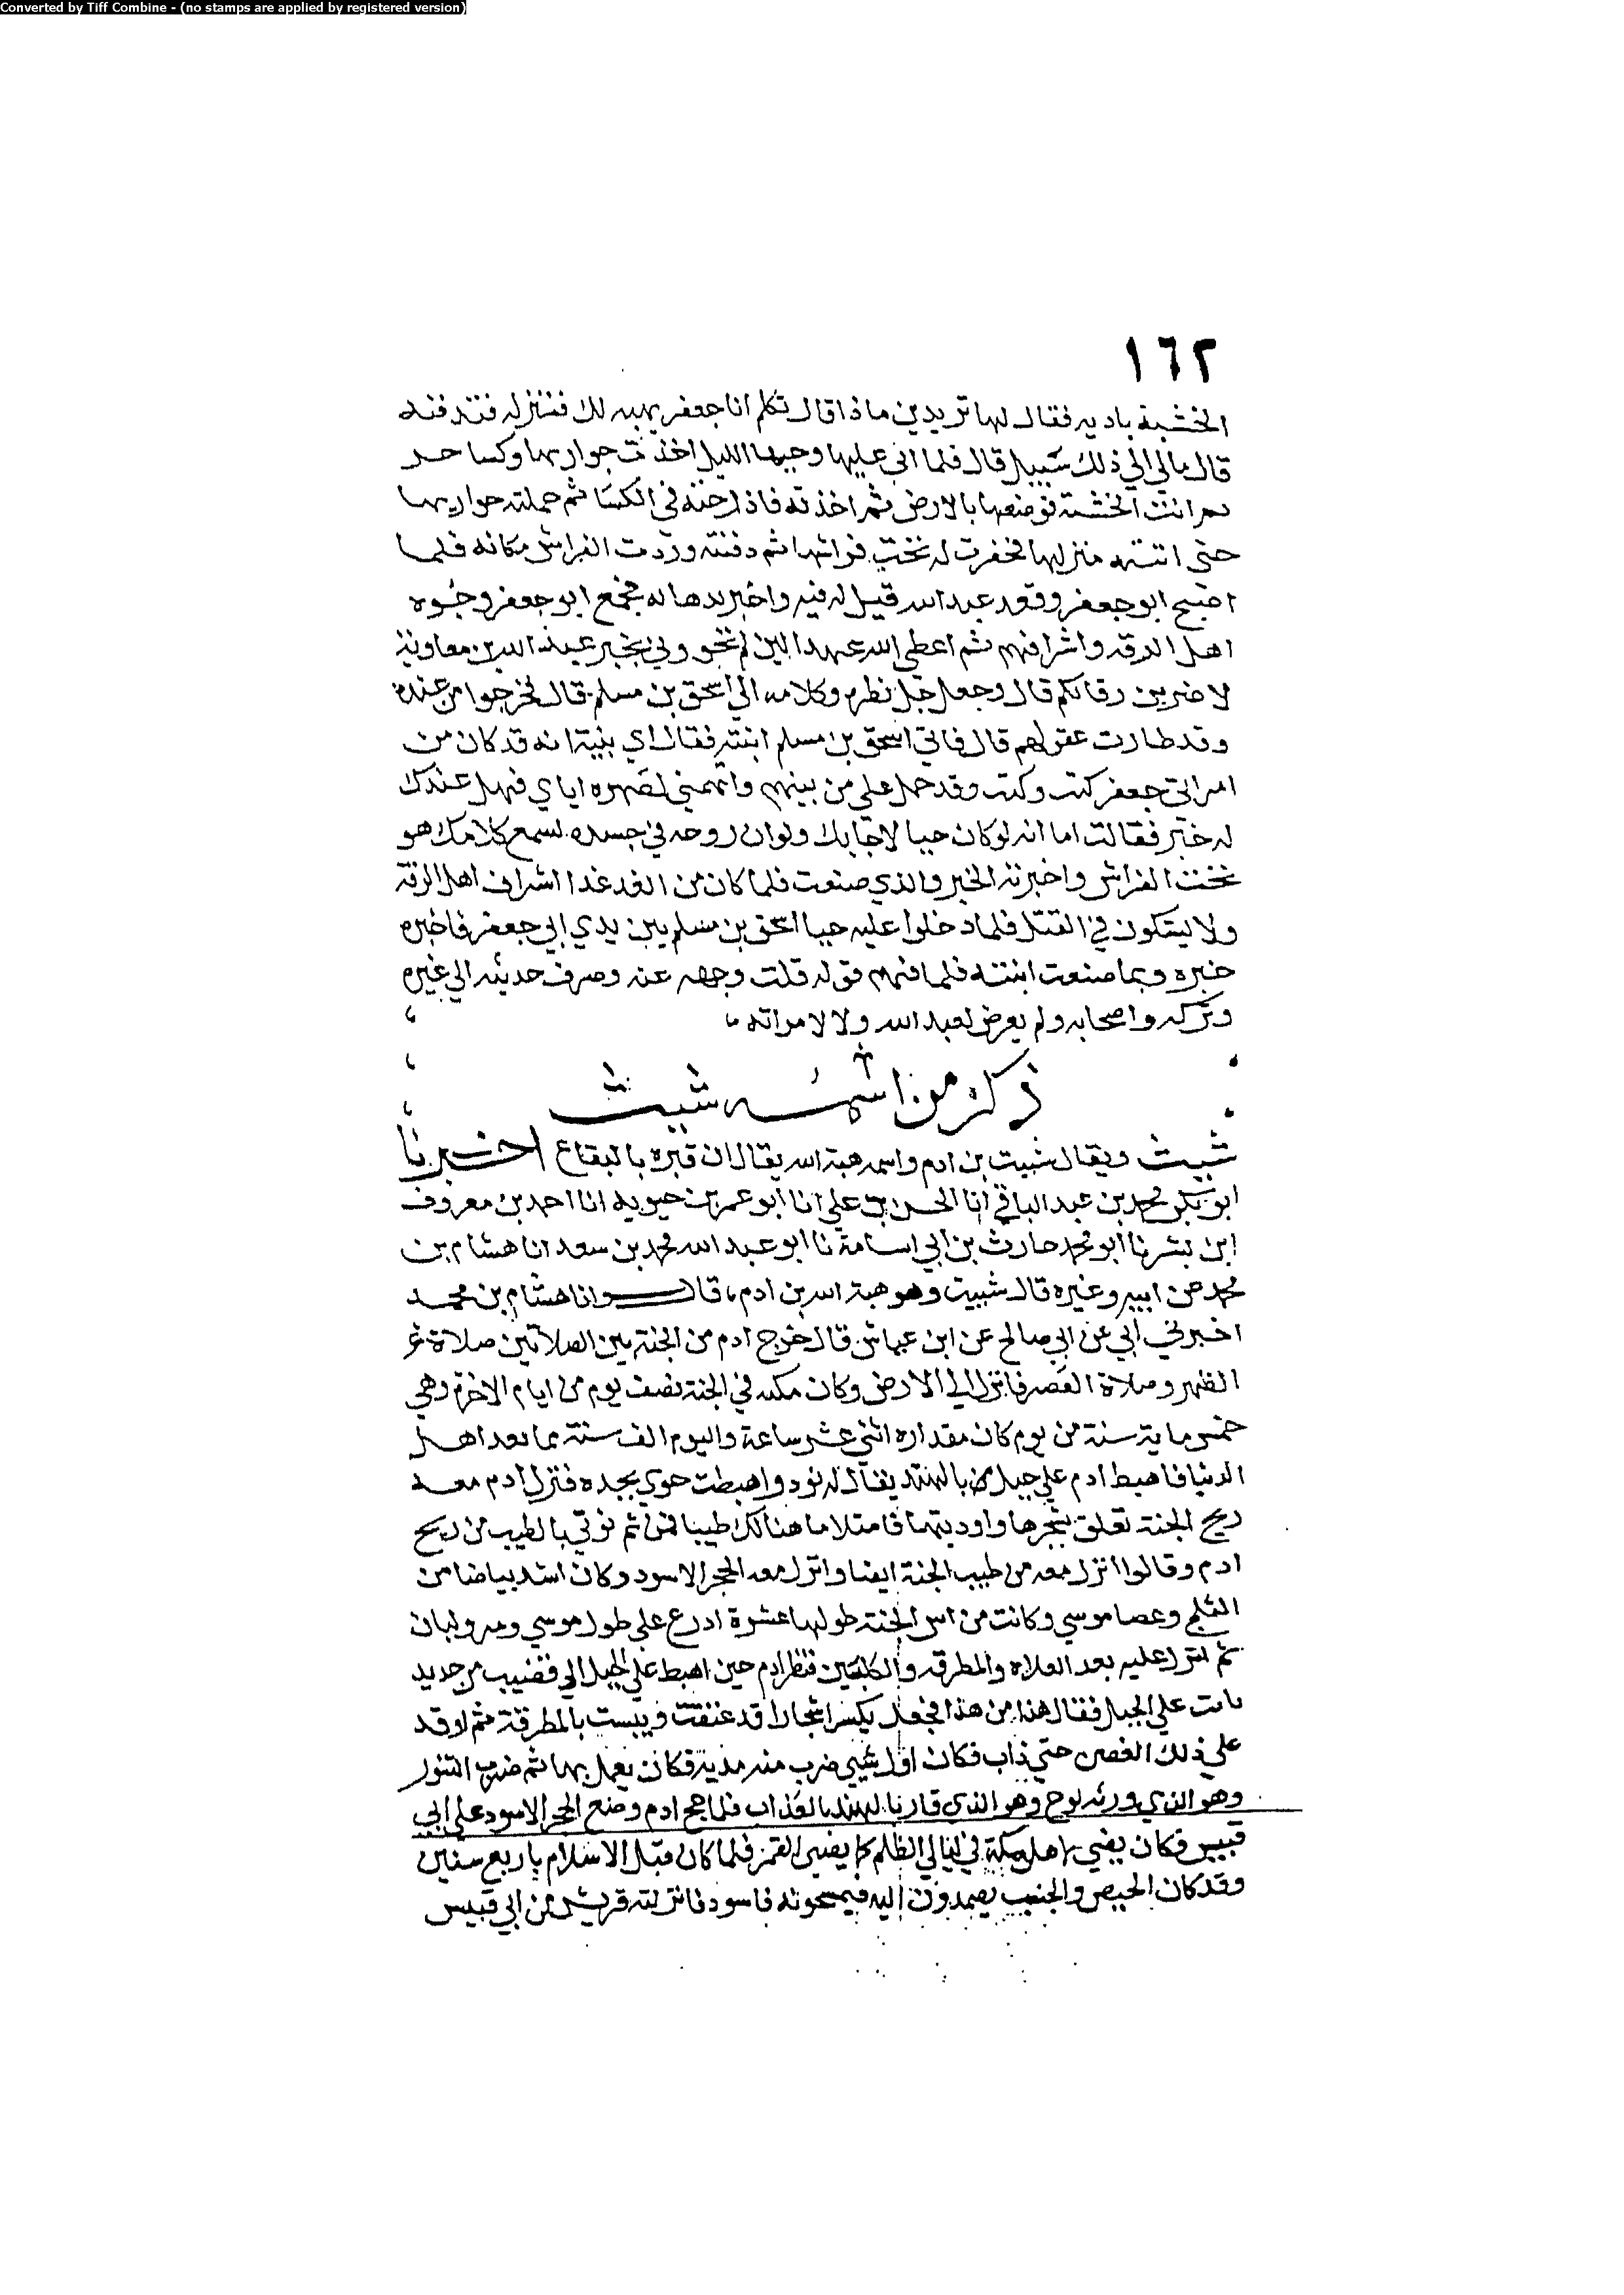 Converted by Tiff Combine - (no stamps are applied by registered version)
١٦٢
الخشبة باديه فقال لها تريدين ماذا قال تكلم انا جعفر يهبه لك فتنزله فتدفنه
قال مالي الي ذلك سبيل قال فلما اتي عليها وجنها الليل اخذت جواريها وكسا
اتت الخشبة فوضعها بالارض ثم اخذته فادرجته في الكسا ثم حملته جواريها
حتى اتت به منزلها فحفرت له تحت فراشها ثم دفنته وردت الفراش مكانه فلما
اصبح ابو جعفر وفقد عبد الله قيل له فيه واخبر بذهابه فجمع ابو جعفر وجوه
اهل الرقه واشرافهم ثم اعطى الله عهدا لين لم تخبروني بخبر عبد الله بن معاوية
لاضربن رقابكم قال وجعل جل نظره وكلامه الي اسحق بن مسلم قال فخرجوا من عنده
وقد طارت عقولهم قال فاتي اسحق بن مسلم ابنته فقال اي بنية انه قد كان من
امر ابي جعفر كيت وكيت وقد حمل علي من بينهم واتهمني لصهره اياي فهل عندك
له خبر فقالت اما انه لو كان حيا لاجابك ولو ان روحه في جسده لسمع كلامك هو
تحت الفراش واخبرته الخبر والذي صنعت فلما كان من الغد غدا اشراف اهل الرقة
ولا يشكون في القتل فلما دخلوا عليه جثا اسحق بن مسلم بين يدي ابي جعفر فاخبره
خبره وبما صنعت ابنته فلما فهم قوله قلب وجهه عنه وصرف حديثه الي غيره
وتركه واصحابه ولم يعرض لعبد الله ولا لامراته
ذكر من اسمه شيث
شيث ويقال شبيث بن ادم واسمه هبة الله يقال ان قبره بالبقاع اخبرنا
ابو بكر محمد بن عبد الباقي انا الحسن بن علي انا ابو عمر بن حيويه انا احمد بن معروف
ابن بشر نا ابو محمد حارث بن ابي اسامة نا ابو عبد الله محمد بن سعد انا هشام بن
محمد عن ابيه وغيره قال شيث وهو هبة الله بن ادم قال وانا هشام بن محمد
اخبرني ابي عن ابي صالح عن ابن عباس قال خرج ادم من الجنة بين الصلاتين صلاة
الظهر وصلاة العصر فانزل الي الارض وكان مكثه في الجنة نصف يوم من ايام الاخرة وهي
خمس ماية سنة من يوم كان مقداره اثني عشر ساعة واليوم الف سنة مما يعد اهل
الدنيا فاهبط ادم علي جبل بالهند يقال له نود واهبطت حوي بجده فنزل ادم معه
ريح الجنة تعلق بشجرها واوديتها فامتلا ما هنالك طيبا فمن ثم نوتي بالطيب من ريح
ادم وقالوا انزل معه من طيب الجنة ايضا وانزل معه الحجر الاسود وكان اشد بياضا من
الثلج وعصا موسي وكانت من اس الجنة طولها عشرة اذرع على طول موسي ومر ولبان
ثم انزل عليه بعد العلاه والمطرقه والكلبتين فنظر ادم حين اهبط علي الجبل الي قضيب من حديد
نابت علي الجبل فقال هذا من هذا فجعل يكسر اشجارا قد عتقت ويبست بالمطرقة ثم اوقد
على ذلك الغصن حتي ذاب فكان اول شيي ضرب منه مدية فكان يعمل بها ثم ضرب التنور
وهو الذي ورثه نوح وهو الذي فار بالهند بالعذاب فلما حج ادم وضع الحجر الاسود على ابي
قبيس فكان يضي لاهل مكة في ليالي الظلم كما يضي القمر فلما كان قبل الاسلام باربع سنين
وقد كان الحيض والجنب يصمدون اليه فيمسحونه فاسود فانزلته قريش من ابي قبيس